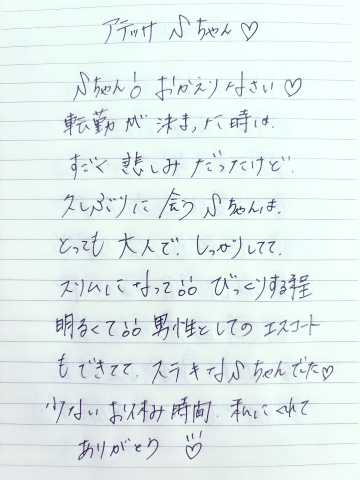 アテッサ Sちゃん♡
Sちゃん!! おかえりなさい♡
転勤が決まった時は、
すごく悲しみだったけど、
久しぶりに会うSちゃんは、
とっても大人で、しっかりしてて、
スリムになって!! びっくりする程
明るくて!! 男性としてのエスコート
もできてて、ステキなSちゃんでした♡
少ないお休み時間、私にくれて
ありがとう♡